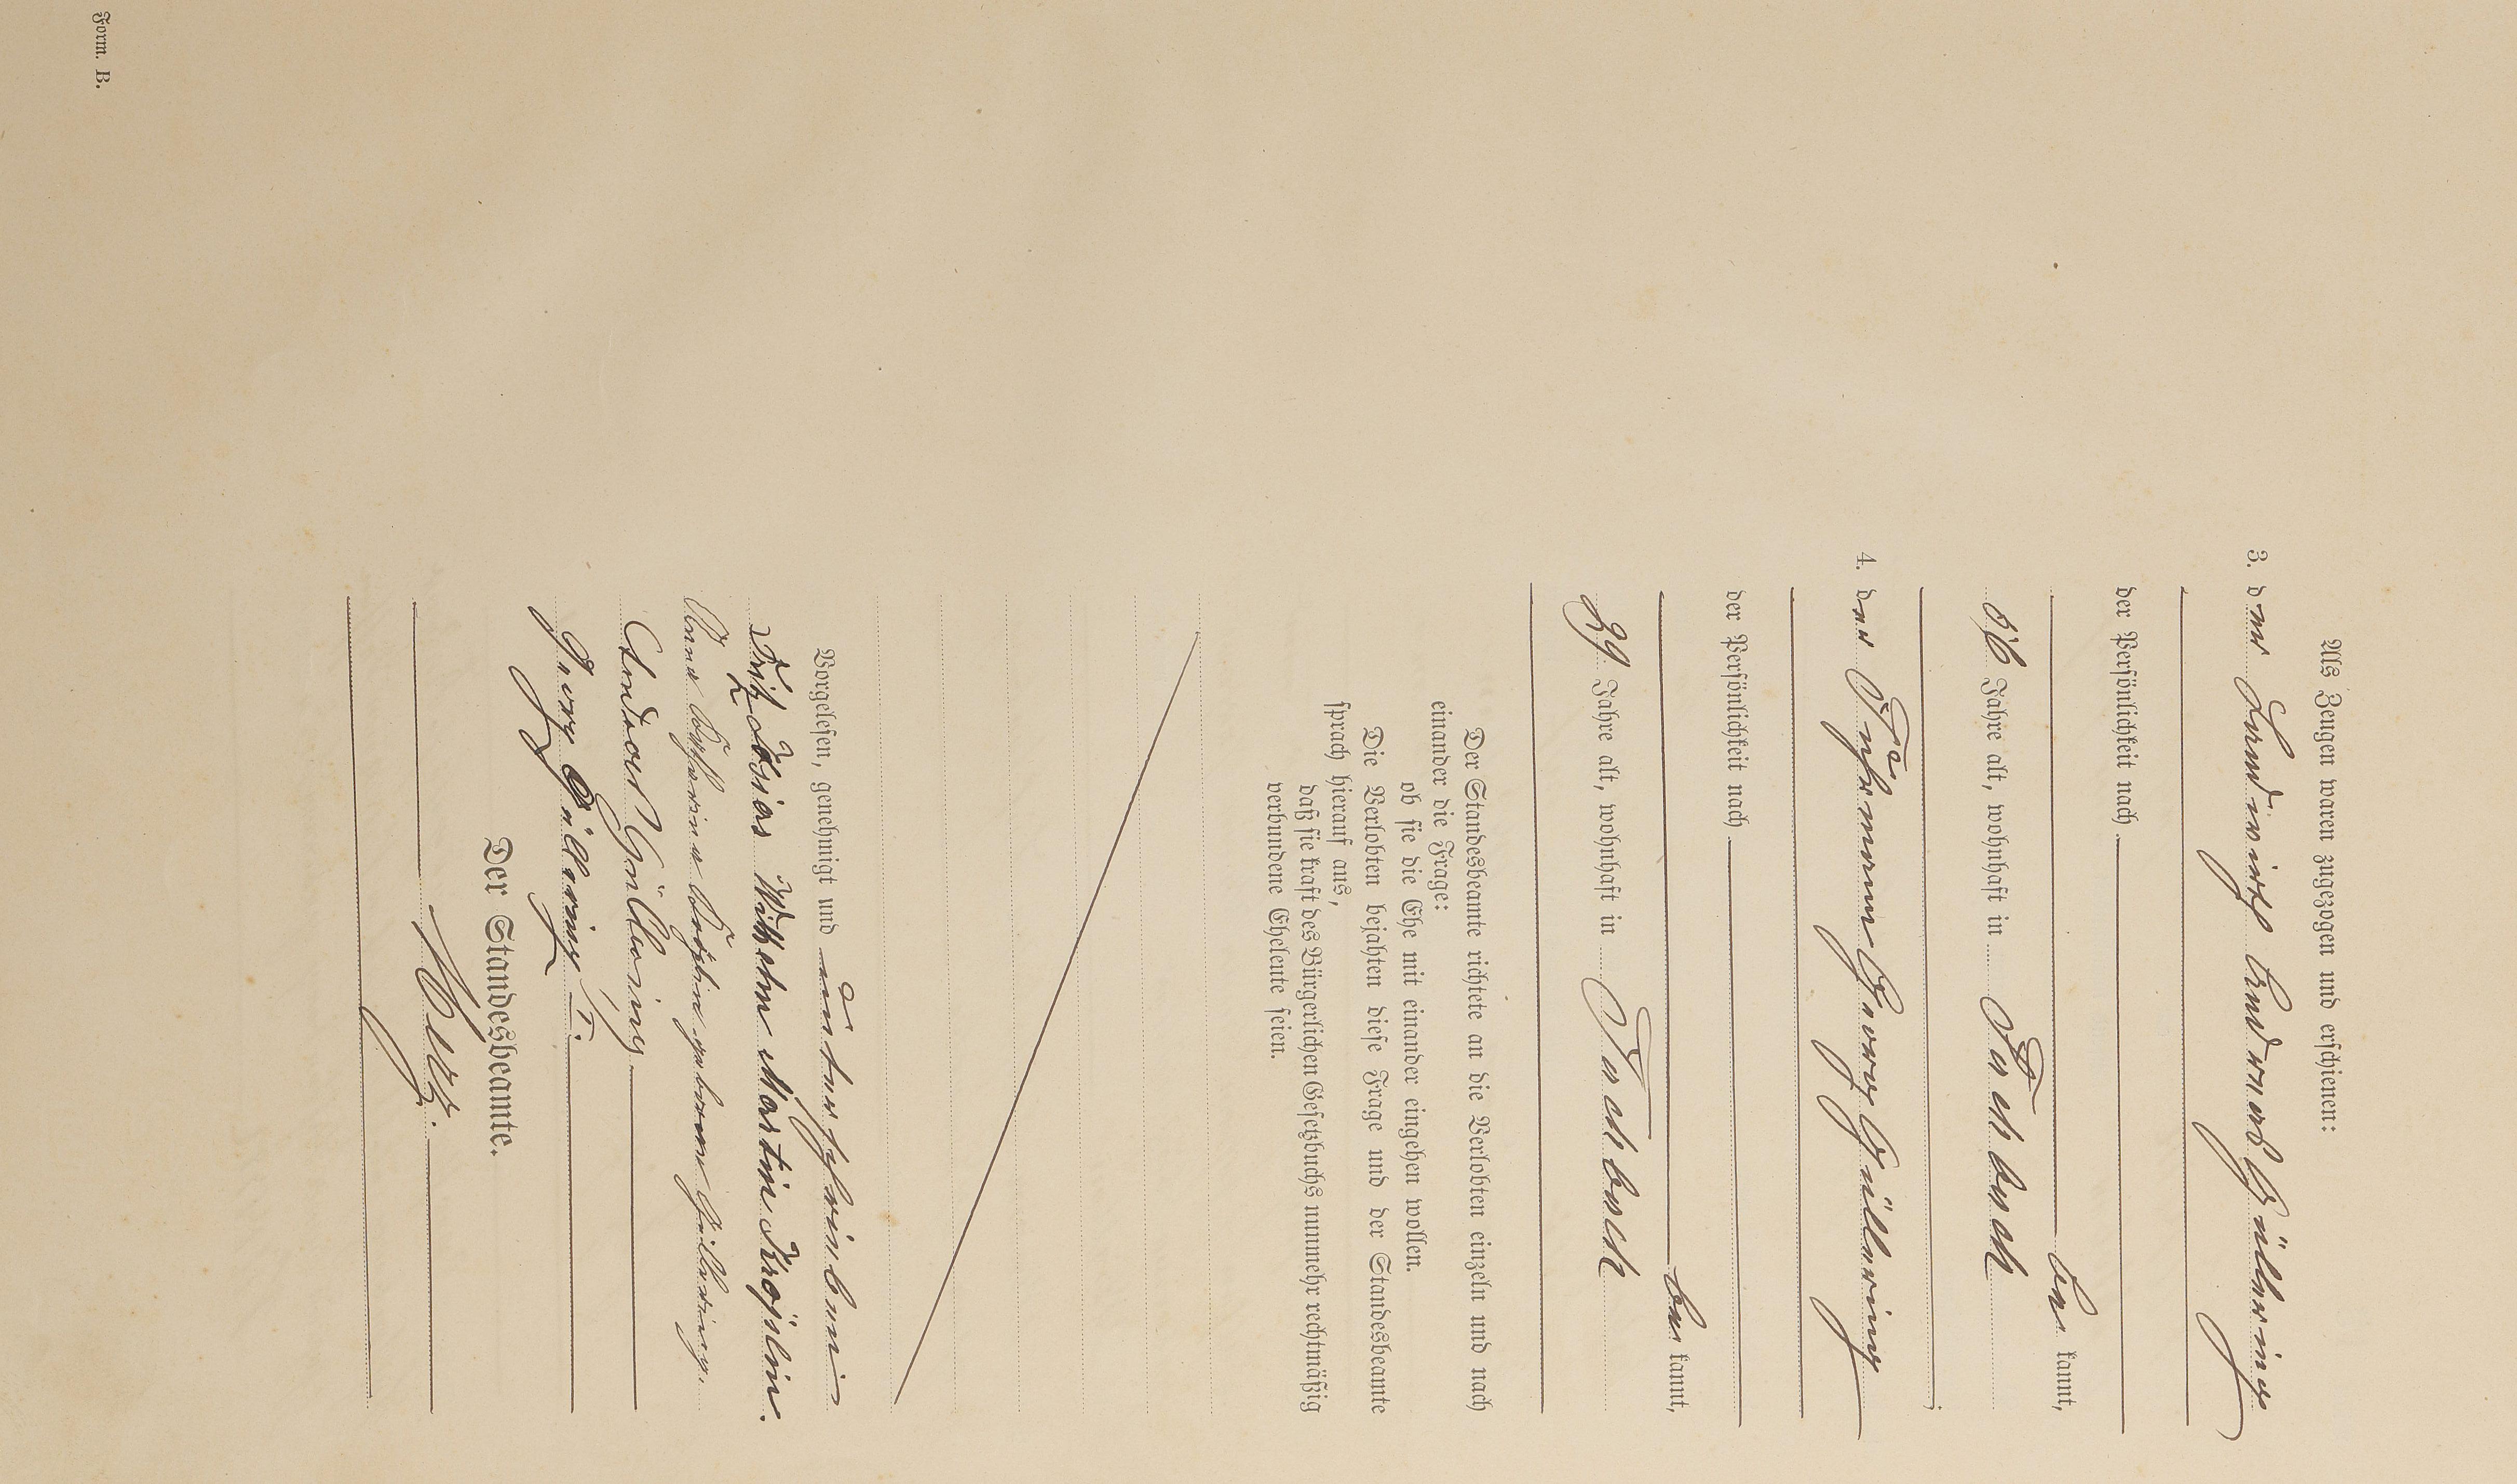 Als Zeugen waren zugezogen und erschienen:
3. der Landwirt
der Persönlichkeit nach
be kannt,
56 Jahre alt, wohnhaft in
4. der Fuhrmann Georg Güllering
der Persönlichkeit nach
be kannt,
39 Jahre alt, wohnhaft in
Der Standesbeamte richtete an die Verlobten einzeln und nach
einander die Frage:
ob sie die Ehe mit einander eingehen wollen.
Die Verlobten bejahten diese Frage und der Standesbeamte
sprach hierauf aus,
daß sie kraft des Bürgerlichen Gesetzbuchs nunmehr rechtmäßig
verbundene Eheleute seien.
Vorgelesen, genehmigt und unterschrieben
Fritz Josias Wilhelm Martin
Anna geborene Güllering.
Güllering
Georg Güllering
Der Standesbeamte.
Form. B.